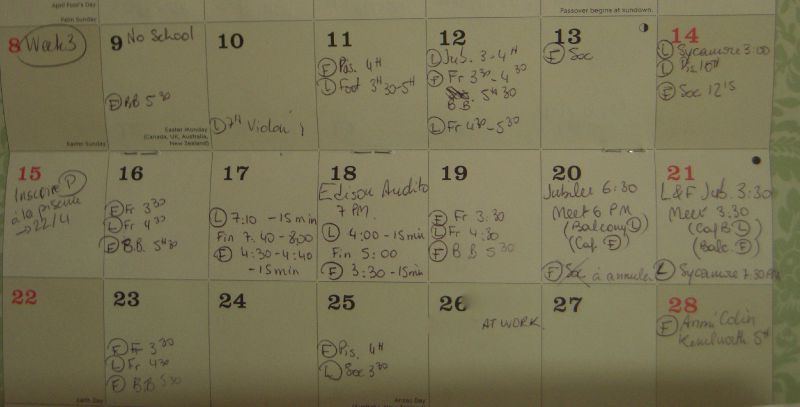 April Fool's Day
Palm Sunday
Passover begins at sundown.
8 Week 3
Easter Sunday
9 No School
E BB 5 30
Easter Monday
(Canada, UK, Australia,
New Zealand)
10
D 7H Violon
11
E Pis. 4H
L Foot 3H30-5H
12
L Jub. 3-4H
E Fr 3 30-4 30
B.B. 5H30
L Fr 4 30-5 30
13
E Soc
14
L Sycamore 3:00
L Pis 16H
E Soc 12 15
15
Inscrire P
à la piscine
→ 22/4
16
E Fr 3 30
L Fr 4 30
E B.B. 5H30
17
L 7:10 - 15 min
Fin 7:40 - 8:00
E 4:30 - 4:40
- 15 min
18
Edison Audito
7 PM.
L 4:00 - 15 min
Fin 5:00
E 3:30 - 15 min
19
E Fr 3:30
L Fr 4:30
E B B 5 30
20
Jubilee 6:30
Meet 6 PM
(Balcony L)
(Caf. E)
E Soc à annuler
21
L&F Jub. 3:30
Meet 3:30
(Caf B L)
(Balc. E)
L Sycamore 7.30 PM
22
Earth Day
23
E Fr 3 30
L Fr 4 30
E B.B 5 30
24
25
E Pis. 4H
L Soc 3 30
Anzac Day
26
AT WORK
27
28
E Anni Colin
Kenilworth 5H